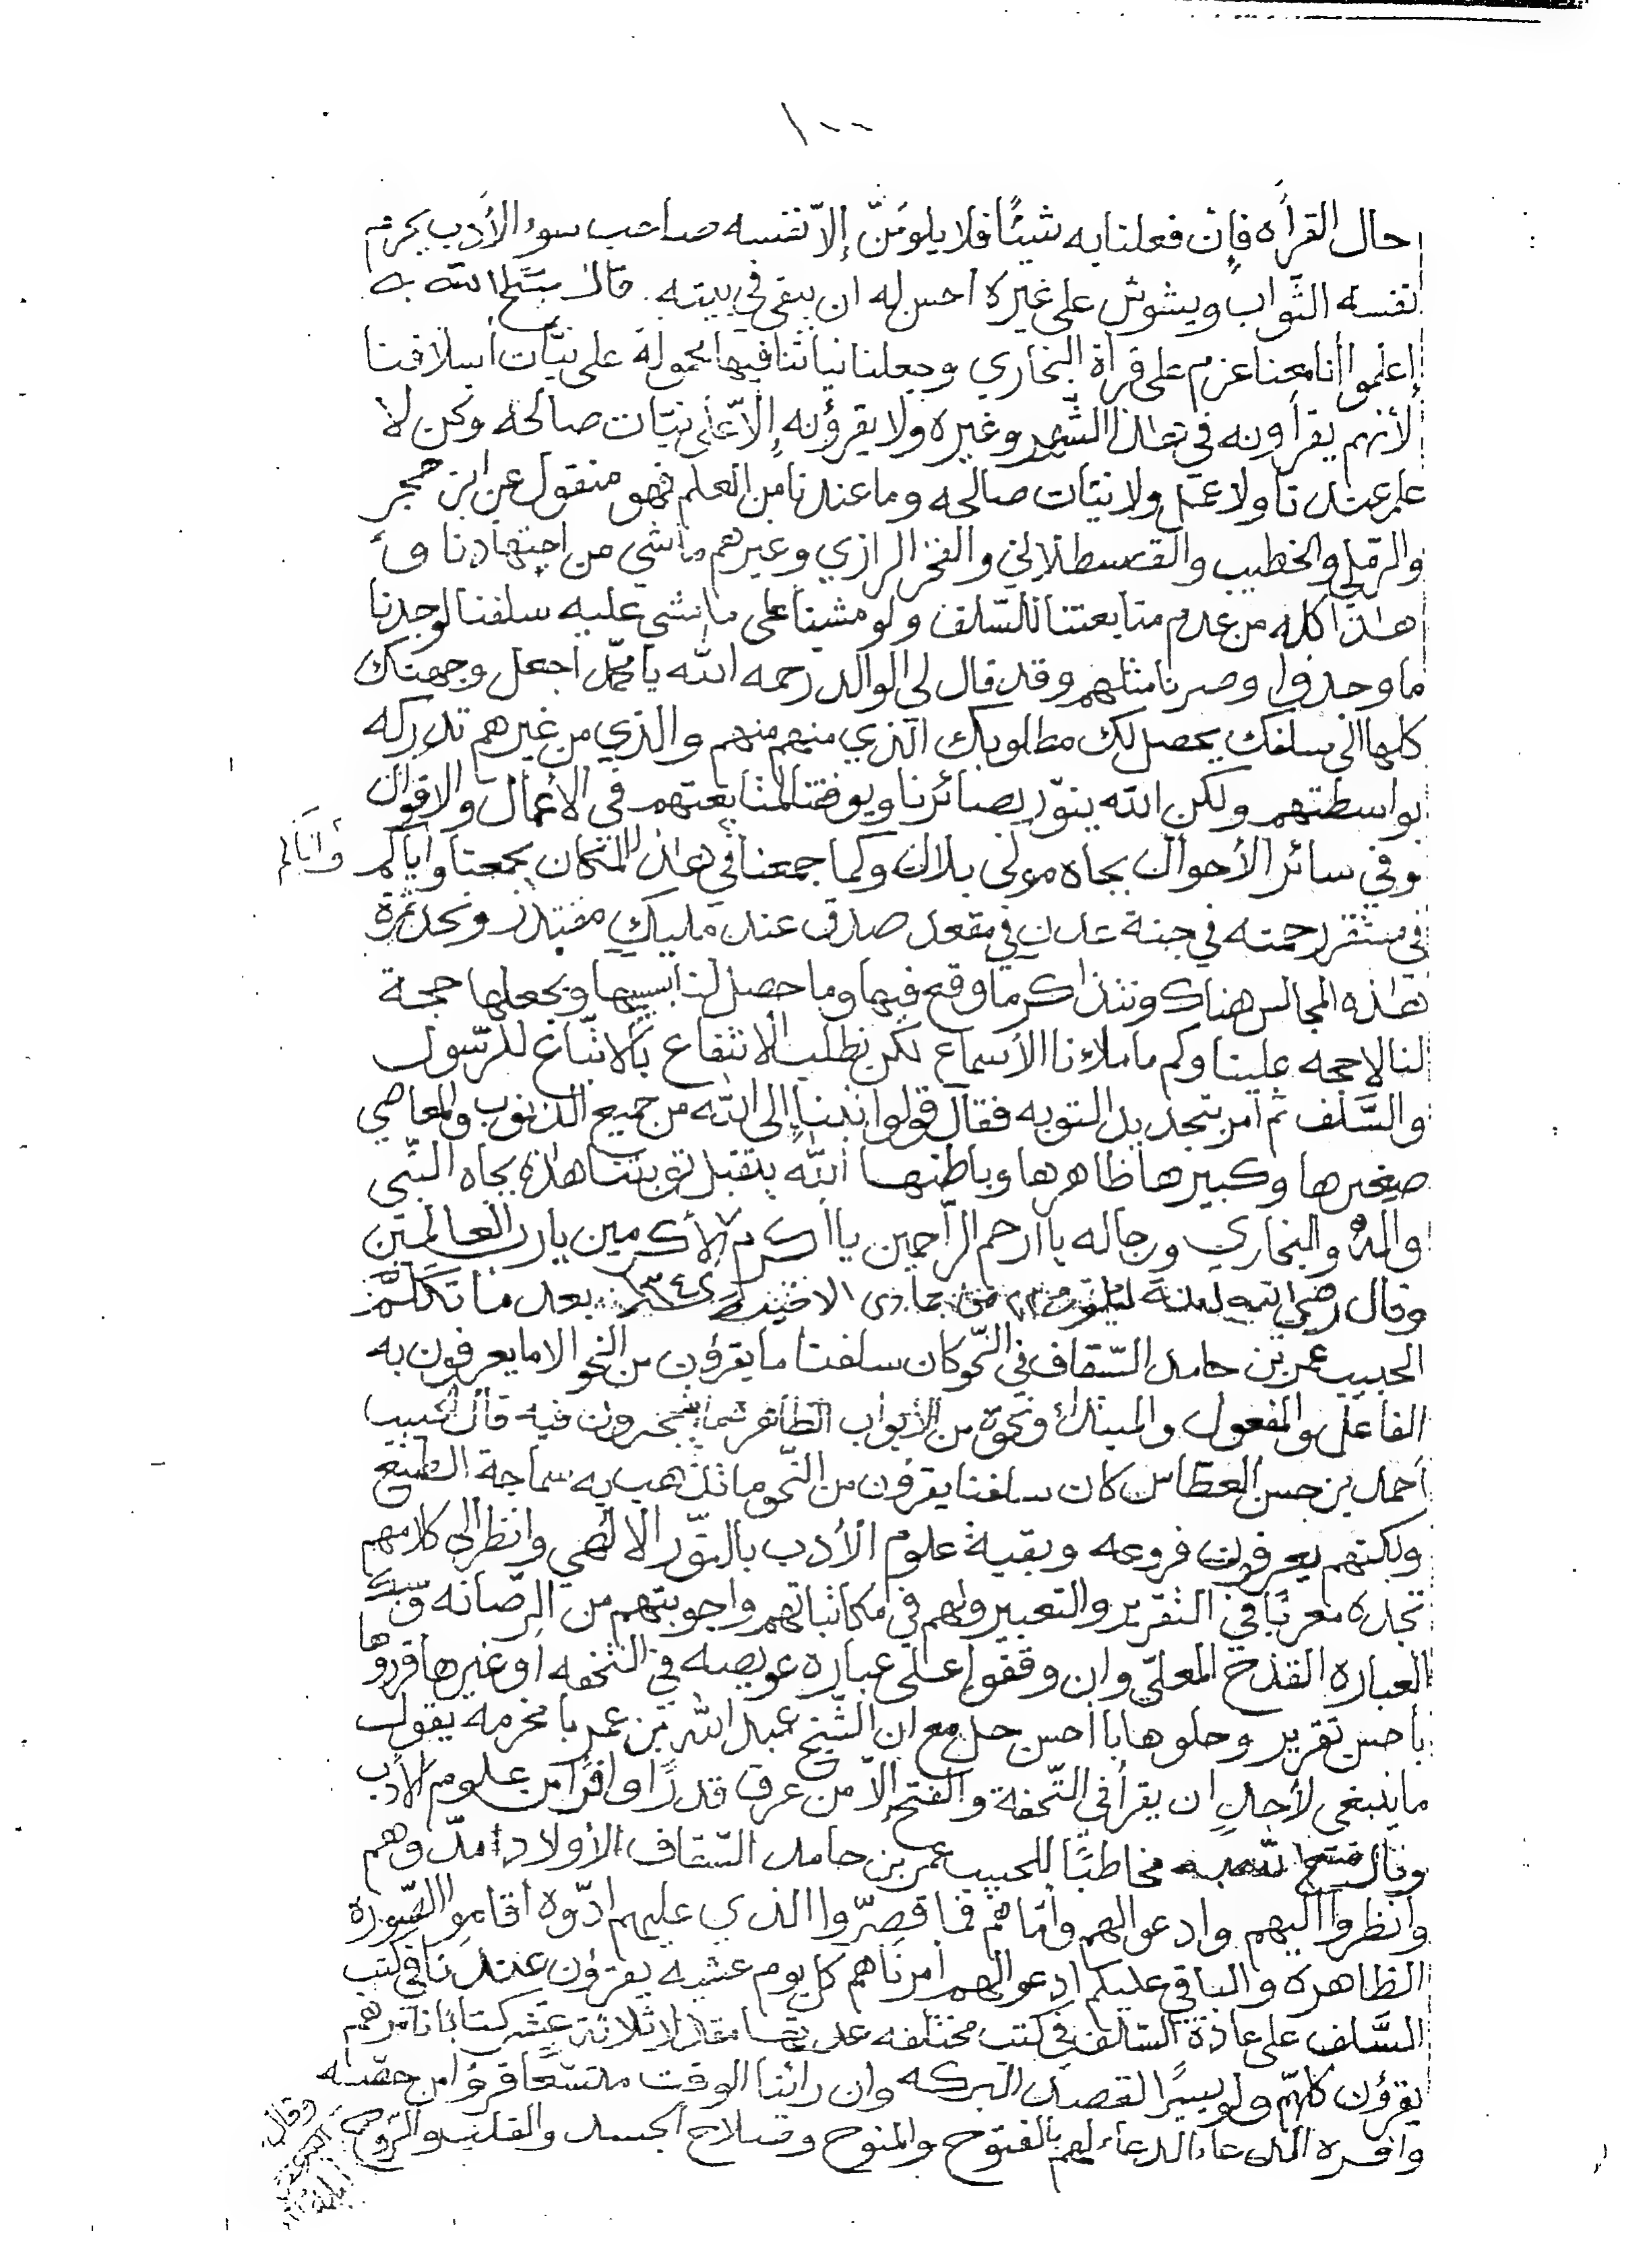 ١٠٠
حال القرأه فإن فعلنا به شيئًا فلا يلومَنّ إلاّ نفسه صاحب سوء الأدب يحرم
نفسه الثواب ويشوش على غيره احسن له ان يبقى في بيته. قال متع الله به
إعلموا أنا معنا عزم على قرأة البخاري وجعلنا نياتنا فيها محمولة على نيّات أسلافنا
لأنهم يقرأونه في هذا الشهر وغيره ولا يقرؤنه إلاّ على نيّات صالحه ونحن لا
علم عندنا ولا عمل ولا نيّات صالحه وما عندنا من العلم فهو منقول عن ابن حجر
والرملي والخطيب والقسطلاني والفخر الرازي وغيرهم ماشي من اجتهادنا و
هذا كله من عدم متابعتنا للسّلف ولو مشينا على ما مشى عليه سلفنا لوجدنا
ما وجدوا وصرنا مثلهم وقد قال لي الوالد رحمه الله يا محمّد اجعل وجهتك
كلها الى سلفك يحصل لك مطلوبك الّذي منهم منهم والذي من غيرهم تدركه
بواسطتهم ولكن الله ينوّر بصائرنا ويوفقنا لمتابعتهم في الأعمال والاقوال
وفي سائر الأحوال بجاه مولى بلال وكما جمعنا في هذا المكان يجمعنا واياكم
واياكم
في مستقر رحمته في جنة عدن في مقعد صدق عند مليكٍ مقتدر ونجد ثمرة
هذه المجالس هناك ونتذاكر ما وقع فيها وما حصل لنا بسببها ويجعلها حجة
لنا لا حجه علينا وكم ما ملاؤنا الأسماع لكن نطلب الانتفاع بالاتّباع للرّسول
والسَّلف ثم أمر بتجديد التوبه فقال قولوا تبنا إلى الله من جميع الذنوب والمعاصي
صغيرها وكبيرها ظاهرها وباطنها الله يتقبل توبتنا هذه بجاه النبّي
وآله والبخاري ورجاله يا ارحم الرّاحمين يا اكرم الأكرمين يارب العالمين
وقال رضي الله عنه من جمادى الاخر ١٣٤٢ بعد ما تكلّم
الحبيب عمر بن حامد السّقاف في النّحو كان سلفنا ما يقرؤن من النحو الا ما يعرفون به
الفاعل والمفعول والمبتدأ ونحوه من الأبواب الظاهر ما يتبحرون فيه قال الحبيب
أحمد بن حسن العطّاس كان سلفنا يقرؤن من النّحو ما تذهب به سماجة الطبع
ولكنهم يعرفون فروعه وبقية علوم الأدب بالنّور الالهي وانظر الى كلامهم
تجده معربًا في التقرير والتعبير ولهم في مكاتباتهم واجوبتهم من الرّصانه وسبك
العباره القدح المعلّى وان وقفوا على عباره عويصه في التحفه أو غيرها قرروها
بأحسن تقرير وحلوها بأ أحسن حل مع ان الشّيخ عبد الله بن عمر با مخرمه يقول
ما ينبغي لأحدٍ ان يقرأ في التّحفة والفتح إلاّ من عرف قدرًا وافرًا من علوم الأدب
وقال متع الله به مخاطبًا للحبيب عمر بن حامد السّقاف الأولاد أمدّوهم
وانظروا اليهم وادعوا لهم وأمّا هم فما قصرّوا الذي عليهم ادّوه أقاموا الصّوره
الظاهره والباقي عليكم ادعوا لهم امرناهم كل يوم عشيه يقرؤن عندنا في كتب
السَّلف على عادة السّالف في كتب مختلفه عددها مقدار ثلاثة عشر كتابًا نأمرهم
يقرؤن كلهّم ولو يسيرًا القصد البركه وان رأينا الوقت متسعًا قرؤا من حصّه
وافره الدعاء الدعاء لهم بالفتوح والمنوح وصلاح الجسد والقلب والرّوح
وقال